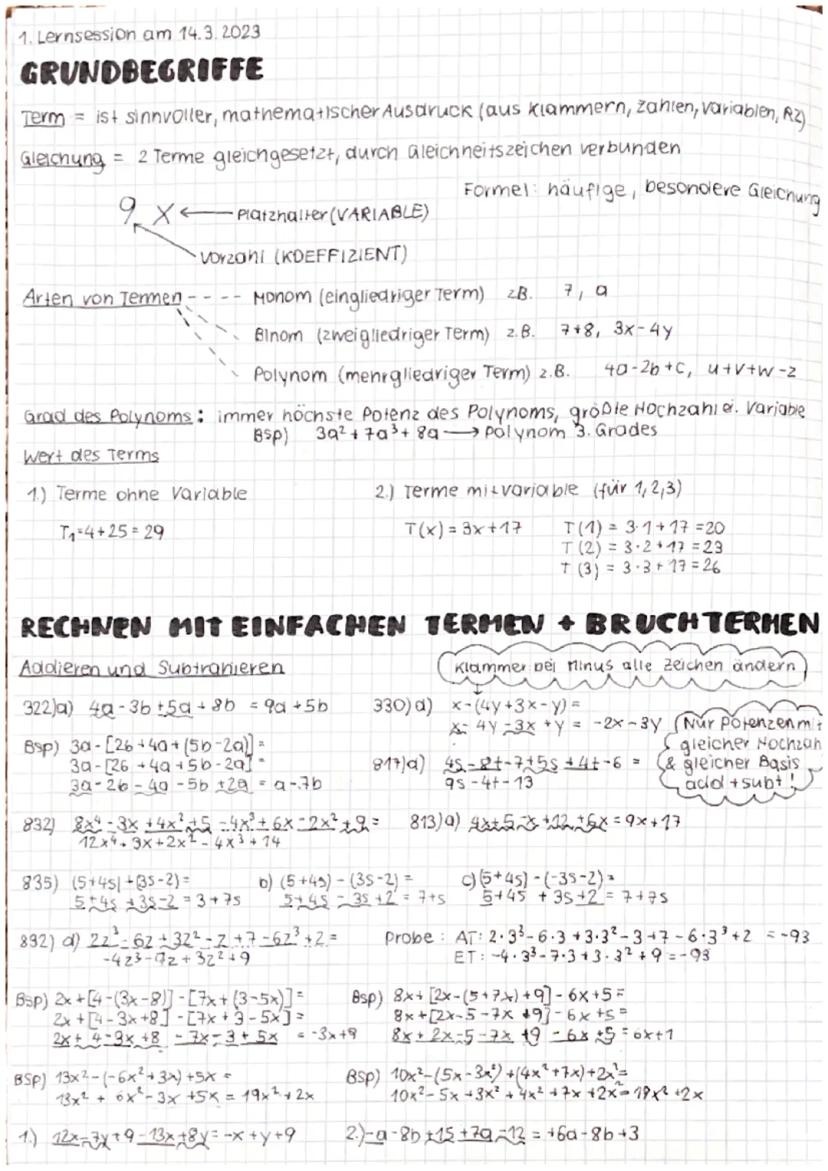 1. Lernsession am 14.3.2023
GRUNDBEGRIFFE
Term = ist sinnvoller, mathematischer Ausdruck (aus Klammern, Zahlen, Variablen, RZ)
Gleichung = 2 Terme gleichgesetzt, durch Gleichheitszeichen verbunden
Formel: häufige, besondere Gleichung
9 x ← Platzhalter (VARIABLE)
Vorzahl (KOEFFIZIENT)
Arten von Termen ---- Monom (eingliedriger Term) zB. 7, a
Binom (zweigliedriger Term) z.B. 7+8, 3x-4y
Polynom (mehrgliedriger Term) z.B. 4a-2b+c, u+v+w-z
Grad des Polynoms: immer höchste Potenz des Polynoms, größte Hochzahl d. Variable
Bsp) 3a²+7a³+8a → Polynom 3. Grades
Wert des Terms
1.) Terme ohne Variable 2.) Terme mit Variable (für 1,2,3)
T₁=4+25=29 T(x)=3x+17 T(1) = 3·1+17=20
T(2) = 3·2+17=23
T(3) = 3·3+17=26
RECHNEN MIT EINFACHEN TERMEN + BRUCHTERMEN
Addieren und Subtrahieren Klammer bei Minus alle Zeichen ändern
322)a) 4a-3b+5a+8b = 9a+5b 330)d) x-(4y+3x-y)=
x-4y-3x+y = -2x-3y
Nur Potenzen mit
gleicher Hochzahl
& gleicher Basis
add + subt!
Bsp) 3a-[2b+4a+(5b-2a)]=
3a-[2b+4a+5b-2a]=
3a-2b-4a-5b+2a = a-7b
817)a) 4s-8t-7+5s+4t-6 =
9s-4t-13
832) 8x⁴-3x+4x²+5-4x³+6x-2x²+9= 813)a) 4x+5-x+12+6x=9x+17
12x⁴+3x+2x²-4x³+14
835) (5+4s)+(3s-2)= b) (5+4s)-(3s-2)= c) (5+4s)-(-3s-2)=
5+4s+3s-2=3+7s 5+4s-3s+2=7+s 5+4s+3s+2=7+7s
832) d) 2z³-6z+3z²-z+7-6z³+2= Probe: AT: 2·3³-6·3+3·3²-3+7-6·3³+2 =-93
-4z³-7z+3z²+9 ET: -4·3³-7·3+3·3²+9=-93
Bsp) 2x+[4-(3x-8)]-[7x+(3-5x)]= Bsp) 8x+[2x-(5+7x)+9]-6x+5=
2x+[4-3x+8]-[7x+3-5x]= 8x+[2x-5-7x+9]-6x+5=
2x+4-3x+8-7x-3+5x = -3x+9 8x+2x-5-7x+9-6x+5=6x+1
BSP) 13x²-(-6x²+3x)+5x = BSP) 10x²-(5x-3x²)+(4x²+7x)+2x²=
13x²+6x²-3x+5x=19x²+2x 10x²-5x+3x²+4x²+7x+2x²=19x²+2x
1.) 12x-7y+9-13x+8y=-x+y+9 2.) -a-8b+15+7a-12=+6a-8b+3